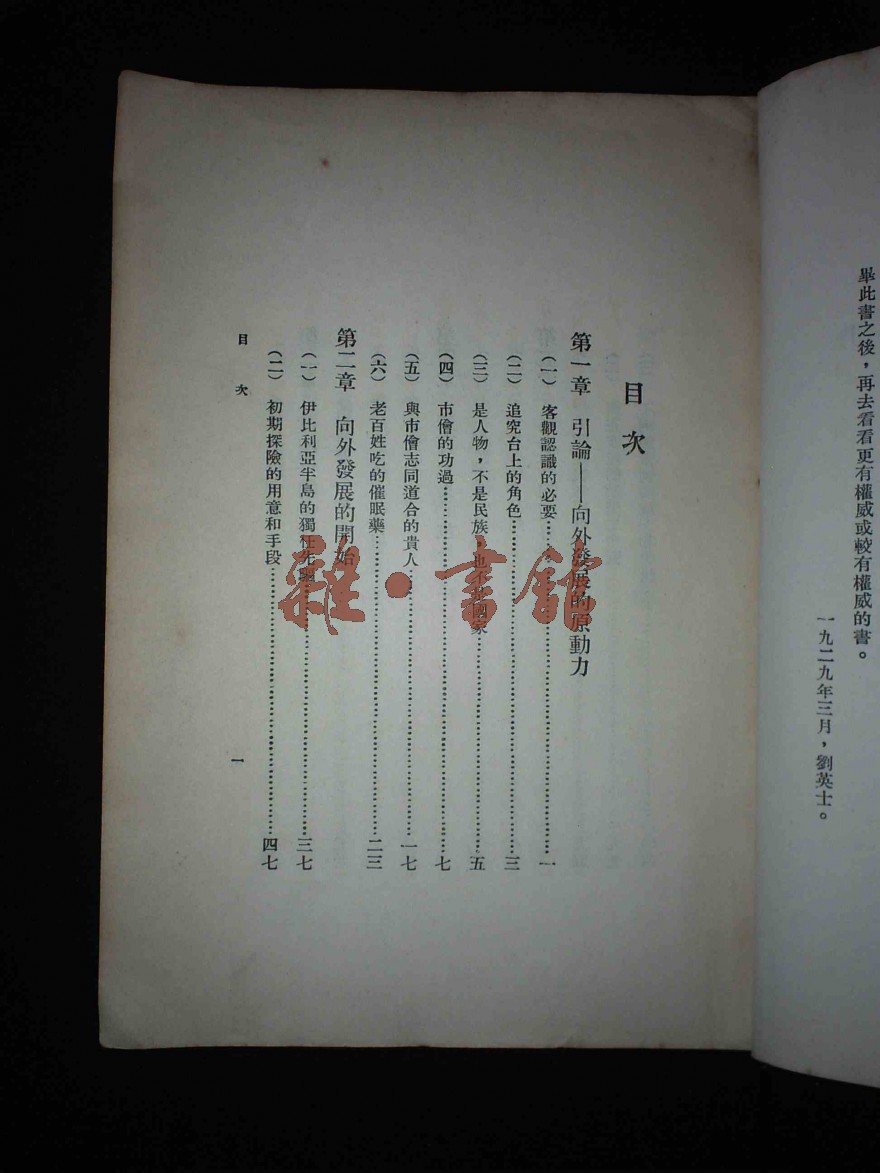 畢此書之後，再去看看更有權威或較有權威的書。
一九二九年三月，劉英士。
目次
第一章 引論——向外發展的原動力
（一）客觀認識的必要……一
（二）追究台上的角色……三
（三）是人物，不是民族，也不是國家……五
（四）市儈的功過……七
（五）與市儈志同道合的貴人……一七
（六）老百姓吃的催眠藥……二三
第二章 向外發展的開始
（一）伊比利亞半島的獨任先驅……三七
（二）初期探險的用意和手段……四七
目次
一
雜·書館